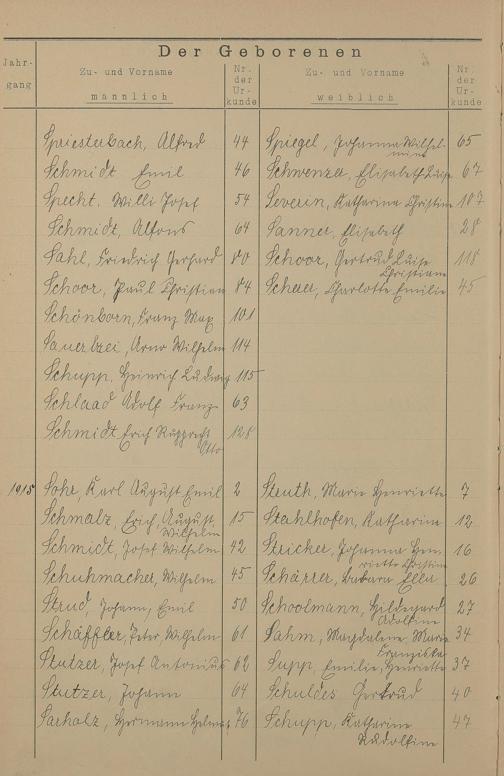 Der Geborenen
Jahr-
gang
Zu- und Vorname
männlich
Nr.
der
Ur-
kunde
Zu- und Vorname
weiblich
Nr.
der
Ur-
kunde
Spriesterbach, Alfred 44 Spiegel, Johanna Wilhel-
mine 65
Schmidt Emil 46 Schwenzer, Elisabeth Luise 67
Specht. Willi Josef 54 Severin, Katharina Christine 107
Schmidt, Alfons 64 Sanner, Elisabeth 28
Sahl, Friedrich Gerhard 80 Schoor, Gertrud Luise 118
Christiane
Schoor, Paul Christian 84 Scheuer, Charlotte Emilie 45
Schönborn, Franz Max 101
Sauerbrei, Arno Wilhelm 114
Schupp, Heinrich Ludwig 115
Schlaad Adolf Franz 63
Schmidt, Erich Rupprecht 128
Otto
1915 Sohr, Karl August Emil 2 Steuth, Marie Henriette 7
Schmalz, Erich, August 15 Stahlhofen, Katharina 12
Wilhelm
Schmidt, Josef Wilhelm 42 Stricker, Johanna Hen- 16
riette Christine
Schuhmacher, Wilhelm 45 Schärrer, Barbara Ella 26
Strud, Johann, Emil 50 Schoolmann, Hildegard 27
Adolfine
Schäffler, Peter Wilhelm 61 Sahm, Magdalene Marie 34
Franziska
Stutzer, Josef Antonius 62 Supp, Emilie, Henriette 37
Stutzer, Johann 64 Schuldes Gertrud 40
Sarholz, Hermann Helmut 76 Schupp, Katharina 47
Rudolfine